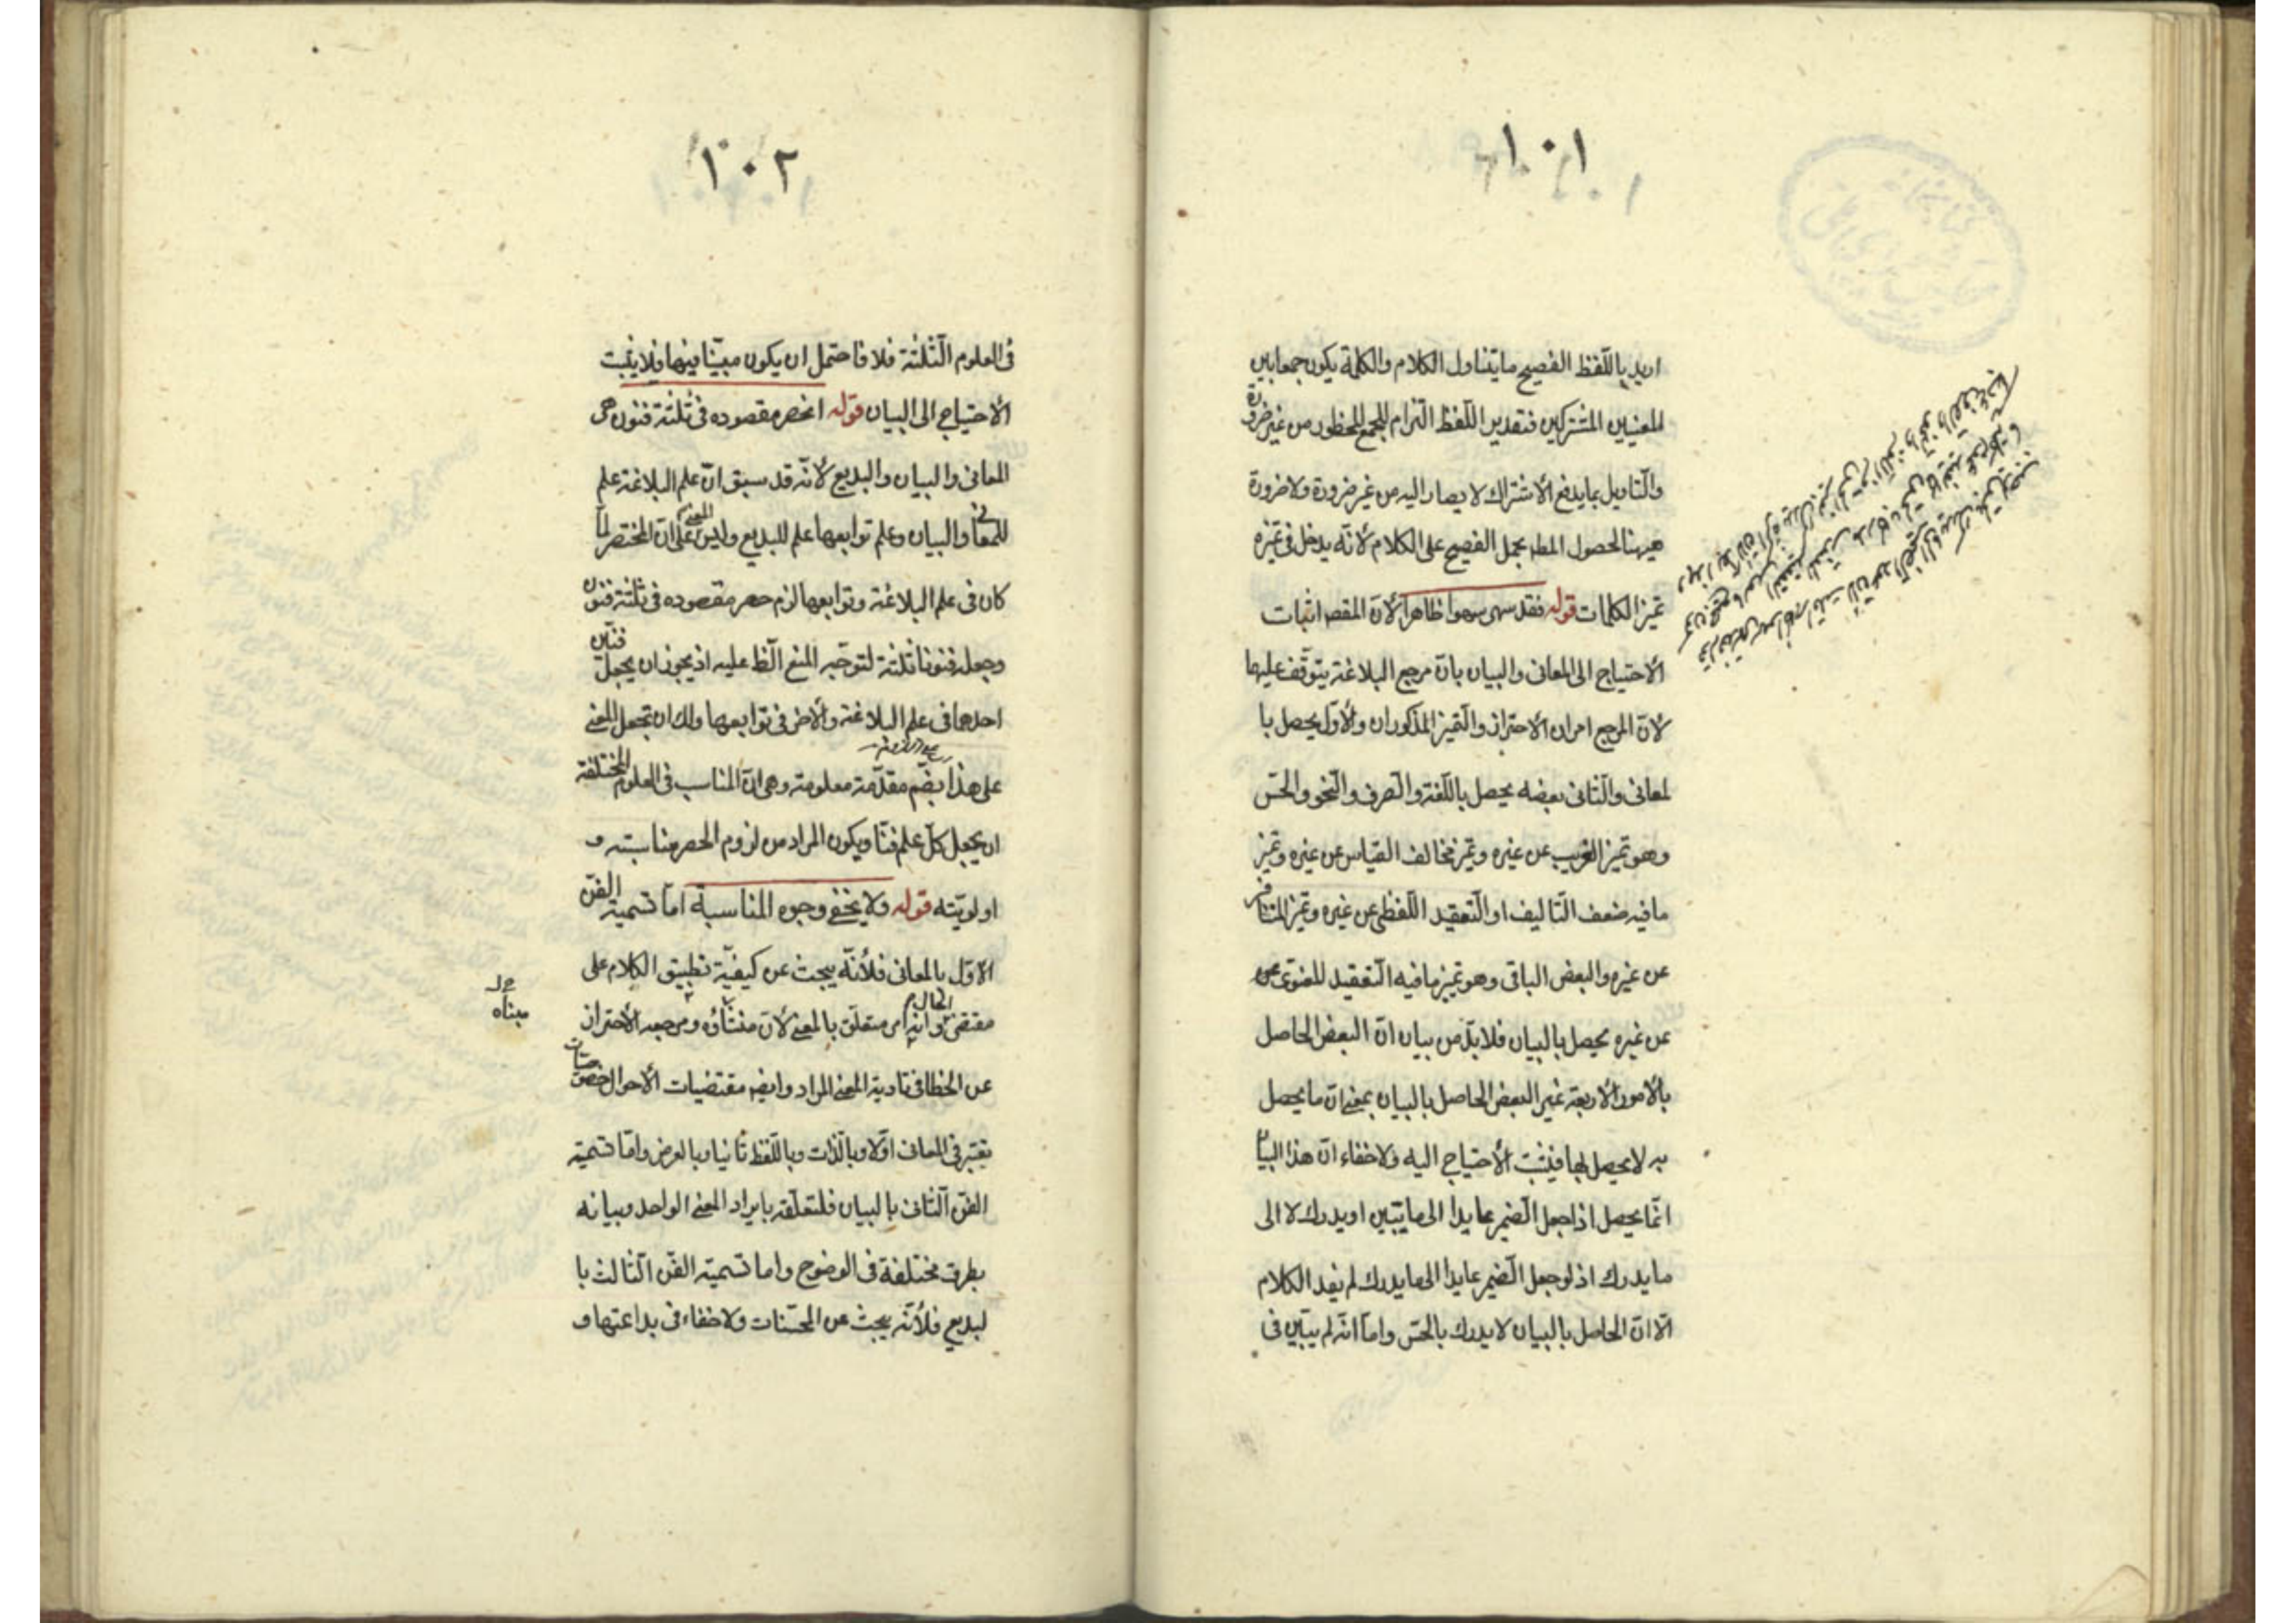 ١٠١
اريد باللّفظ الفصيح ما يتناول الكلام والكلمة يكون جمعا بين
المعنيين المشتركين فتقدير اللّفظ التزام للجمع المحظور من غير ضرورة
والتّاويل بما يدفع الاشتراك لا يصار اليه من غير ضرورة ولا ضرورة
هيهنا لحصول المط بحمل الفصيح على الكلام لانّه يدخل فى تميزه
تميز الكلمات قوله فقد سهى سهوا ظاهرا لانّ المقصد اثبات
الاحتياج الى المعانى والبيان بانّ مرجع البلاغة يتوقّف عليها
لانّ المرجع امران الاحتراز والتّميز المذكوران والاوّل يحصل با
لمعانى والثّانى بعضه يحصل باللّغة والصّرف والنّحو والحسّ
وهو تميز الغريب عن غيره وتميز مخالف القياس عن غيره وتميز
ما فيه ضعف التّاليف او التّعقيد اللّفظى عن غيره وتميز المتنافر
عن غيره والبعض الباقى وهو تميز ما فيه التّعقيد المعنوى عن
عن غيره يحصل بالبيان فلابدّ من بيان انّ البعض الحاصل
بالامور الاربعة غير البعض الحاصل بالبيان بمعنى انّ ما يحصل
به لا يحصل بها فيثبت الاحتياج اليه ولا خفاء انّ هذا البيا
انّما يحصل اذا جعل الضّمير عايدا الى ما يتبين او يدرك لا الى
ما يدرك اذ لو جعل الضّمير عايدا الى ما يدرك لم يفد الكلام
الّا انّ الحاصل بالبيان لا يدرك بالحسّ وامّا انّه لم يبيّن فى
١٠٢
فى العلوم الثّلثة فلا فاحتمل ان يكون مبيّنا فيها فلا يثبت
الاحتياج الى البيان قوله انحصر مقصوده فى ثلثة فنون هى
المعانى والبيان والبديع لانّه قد سبق انّ علم البلاغة علم
المعانى والبيان وعلم توابعها علم البديع وليس المعنى على انّ المختصر لمّا
كان فى علم البلاغة وتوابعها لزم حصر مقصوده فى ثلثة فنون
وجعله فنونا ثلثة لتوجّه المنع الظ عليه اذ يجوز ان يجعل فنّين
احدهما فى علم البلاغة والاخر فى توابعها ولك ان تجعل المعنى
على هذا بضم مقدّمة معلومة وهى انّ المناسب فى العلوم المختلفة
ان يجعل كلّ علم فنّا ويكون المراد من لزوم الحصر مناسبته و
اولويّته قوله ولا يخفى وجوه المناسبة امّا تسمية الفنّ
الاوّل بالمعانى فلأنّه يبحث عن كيفيّة تطبيق الكلام على
مقتضى الحال وانّه امر متعلّق بالمعنى لانّ منشاؤه ومرجعه الاحتراز
مبناه
عن الخطا فى تادية المعنى المراد وايضه مقتضيات الاحوال خصوصيّات
يعتبر فى المعانى اوّلا وبالذّات وباللّفظ ثانيا وبالعرض وامّا تسمية
الفنّ الثّانى بالبيان فلتعلّقه بايراد المعنى الواحد وبيانه
بطرق مختلفة فى الوضوح واما تسمية الفنّ الثّالث با
لبديع فلأنّه يبحث عن المحسّنات ولا خفاء فى بداعتها و